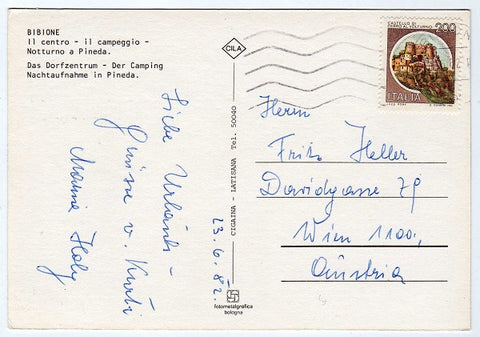 BIBIONE
Il centro - il campeggio -
Notturno a Pineda.
Das Dorfzentrum - Der Camping
Nachtaufnahme in Pineda.
CILA
CIGAINA - LATISANA Tel. 50040
fotometalgrafica
bologna
CASTELLO DI
CERRO AL VOLTURNO
200
ITALIA
Liebe Urlaubs-
grüsse v. Kurti
23.6.82.
Herrn
Fritz Heller
Davidgasse 79
Wien 1100,
Austria